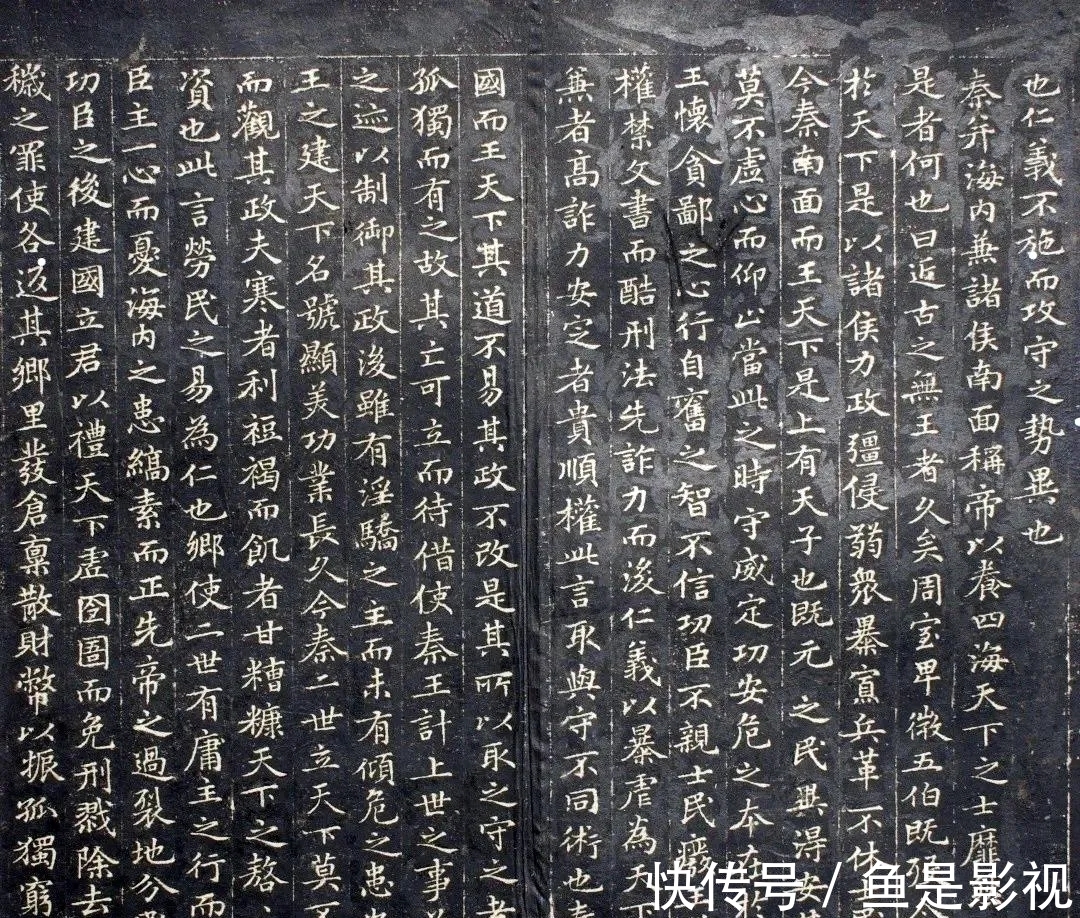 也仁義不施而攻守之势異也
秦并海内兼諸侯南面稱帝以養四海天下之士靡
是者何也曰近古之無王者久矣周室卑微五伯既殁
於天下是以諸侯力政彊侵弱衆暴寡兵革不休
今秦南面而王天下是上有天子也既元之民兾得安
莫不虚心而仰上當此之時守威定功安危之本在於
王懷貪鄙之心行自奮之智不信功臣不親士民
權禁文書而酷刑法先詐力而後仁義以暴虐為天下
兼者高詐力安定者貴順權此言取與守不同術也
國而王天下其道不易其政不改是其所以取之守之者
孤獨而有之故其亡可立而待借使秦王計上世之事
之迹以制御其政後雖有淫驕之主而未有傾危之患
王之建天下名號顯美功業長久今秦二世立天下莫不
而觀其政夫寒者利裋褐而飢者甘糟糠天下之嗸
資也此言勞民之易為仁也鄉使二世有庸主之行而
臣主一心而憂海内之患縞素而正先帝之過裂地分
功臣之後建國立君以禮天下虚囹圄而免刑戮除去
穢之罪使各返其鄉里發倉廩散財幣以振孤獨窮
快传号/鱼是影视